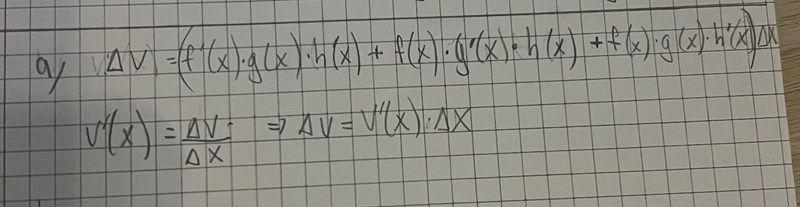 a) (ΔV) = (f'(x)·g(x)·h(x) + f(x)·g'(x)·h(x) + f(x)·g(x)·h'(x))Δx
V'(x) = ΔV/ΔX ⇒ ΔV = V'(x)·ΔX